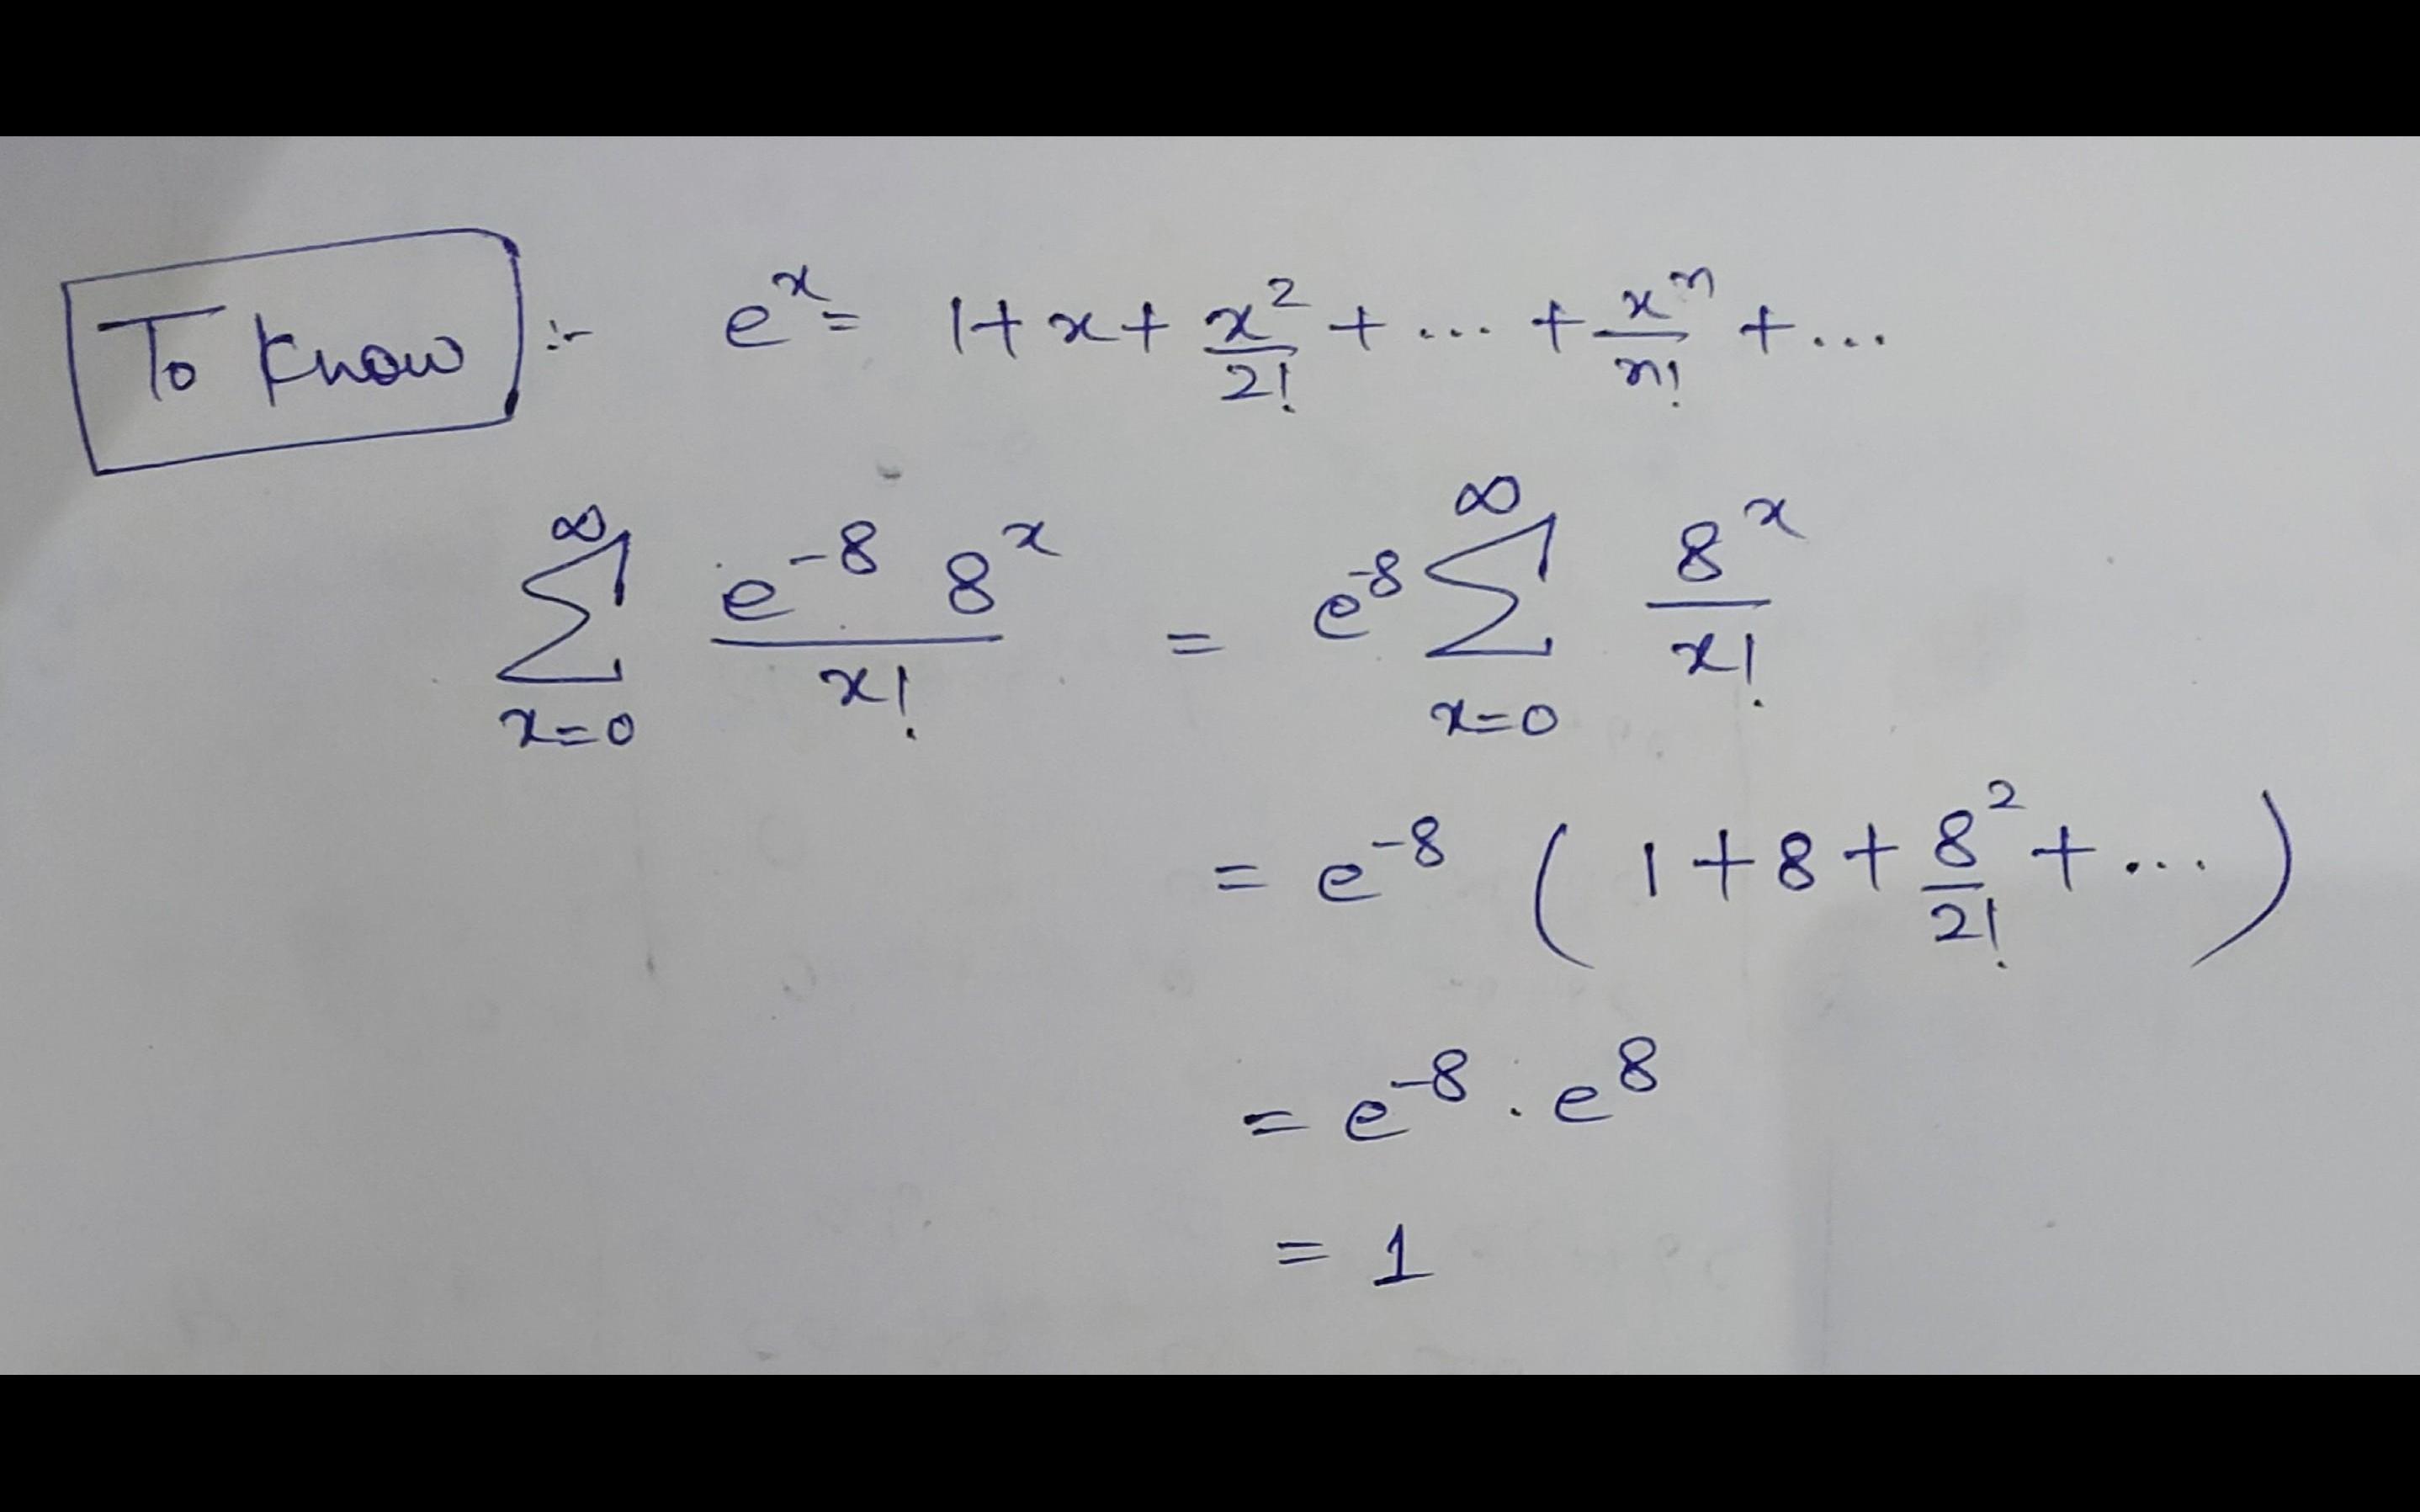 To Know :- e^x = 1 + x + x^2/2! + ... + x^n/n! + ...
∞∑x=0 e^-8 8^x / x! = e^-8 ∞∑x=0 8^x / x!
= e^-8 ( 1 + 8 + 8^2/2! + ... )
= e^-8 . e^8
= 1